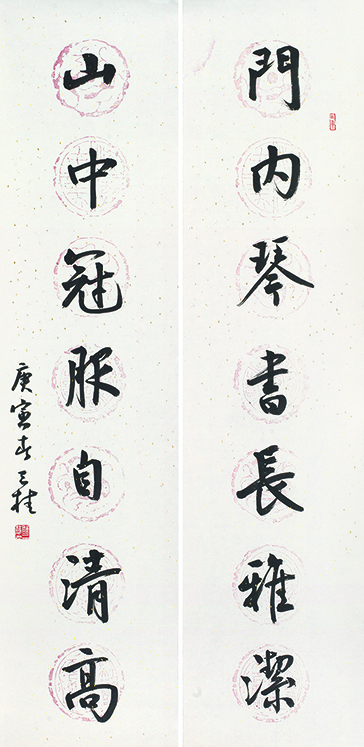 門内琴書長雅潔
山中冠服自清高
庚寅春